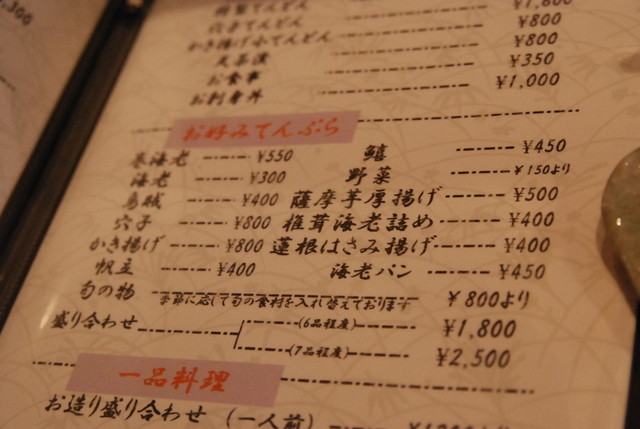 ,300
特製てんどん ¥1,800
穴子てんどん ¥800
かき揚げ小てんどん ¥800
天茶漬 ¥350
お食事 ¥1,000
お刺身丼
お好みてんぷら
巻海老 ¥550 鱚 ¥450
海老 ¥300 野菜 ¥150より
烏賊 ¥400 薩摩芋厚揚げ ¥500
穴子 ¥800 椎茸海老詰め ¥400
かき揚げ ¥800 蓮根はさみ揚げ ¥400
帆立 ¥400 海老パン ¥450
旬の物 季節に応じて旬の食材を入れ替えております ¥800より
盛り合わせ (6品程度) ¥1,800
(7品程度) ¥2,500
一品料理
お造り盛り合わせ (一人前)